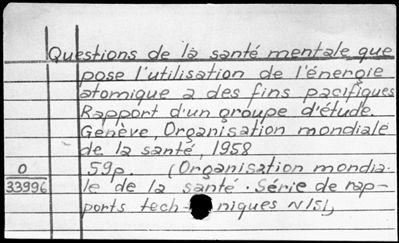 Questions de la santé mentale que
pose l'utilisation de l'énergie
atomique a des fins pacifiques
Rapport d'un groupe d'étude.
Genève, Organisation mondiale
de la santé, 1958
O
33996
59p. (Organisation mondia-
le de la santé. Série de rap-
ports tech- niques N151)